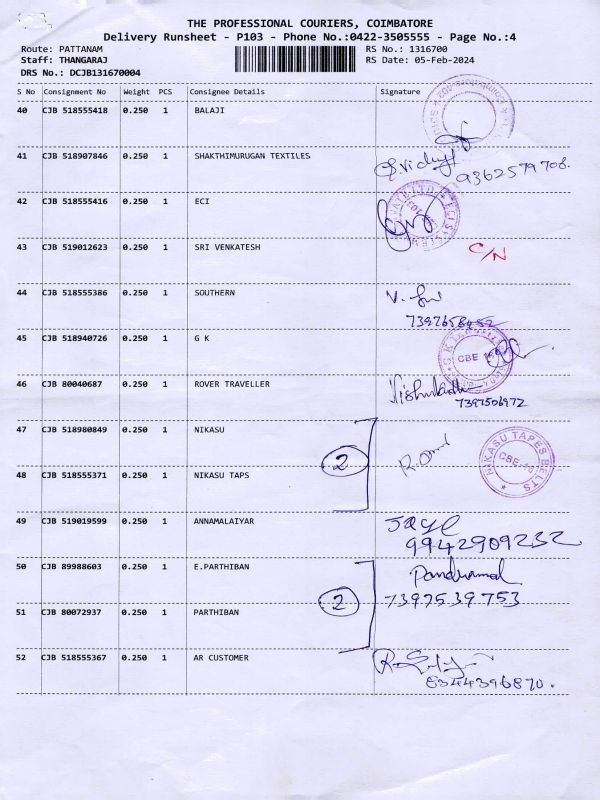 THE PROFESSIONAL COURIERS, COIMBATORE
Delivery Runsheet - P103 - Phone No.:0422-3505555 - Page No.:4
Route: PATTANAM RS No.: 1316700
Staff: THANGARAJ RS Date: 05-Feb-2024
DRS No.: DCJB131670004
S No Consignment No Weight PCS Consignee Details Signature
40 CJB 518555418 0.250 1 BALAJI
41 CJB 518907846 0.250 1 SHAKTHIMURUGAN TEXTILES
9362579708.
42 CJB 518555416 0.250 1 ECI
43 CJB 519012623 0.250 1 SRI VENKATESH C/N
44 CJB 518555386 0.250 1 SOUTHERN
45 CJB 518940726 0.250 1 G K
CBE
46 CJB 80040687 0.250 1 ROVER TRAVELLER
7397506972
47 CJB 518980849 0.250 1 NIKASU
2
NIKASU TAPES BELTS
48 CJB 518555371 0.250 1 NIKASU TAPS
49 CJB 519019599 0.250 1 ANNAMALAIYAR
9942909232
50 CJB 89988603 0.250 1 E.PARTHIBAN
2
7397539753
51 CJB 80072937 0.250 1 PARTHIBAN
52 CJB 518555367 0.250 1 AR CUSTOMER
8344396870.